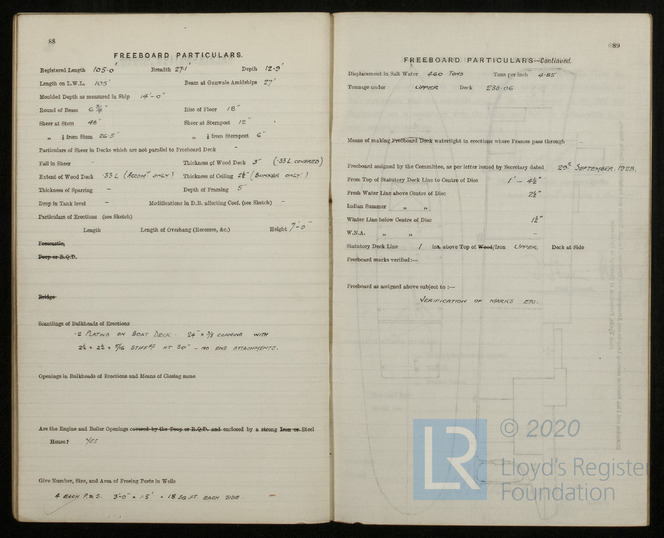 88
FREEBOARD PARTICULARS.
Registered Length 105-0' Breadth 27-1' Depth 12-9'
Length on L.W.L. 105' Beam at Gunwale Amidships 27'
Moulded Depth as measured in Ship 14'-0"
Round of Beam 6¾" Rise of Floor 18"
Sheer at Stem 48" Sheer at Sternpost 12"
„ ¼ from Stem 26.5" „ ¼ from Sternpost 6"
Particulars of Sheer in Decks which are not parallel to Freeboard Deck -
Fall in Sheer - Thickness of Wood Deck 3" (.33 L COVERED)
Extent of Wood Deck .33 L (ACCOMⁿ ONLY) Thickness of Ceiling 2½" (BUNKER ONLY)
Thickness of Sparring - Depth of Framing 5"
Drop in Tank level - Modifications in D.B. affecting Coef. (see Sketch) -
Particulars of Erections (see Sketch)
Length Length of Overhang (Recesses, &c.) Height 7'-0"
Forecastle,
Poop or R.Q.D.
Bridge
Scantlings of Bulkheads of Erections
.2 PLATING ON BOAT DECK. 24" × 3/8 COAMING WITH
2½ × 2½ × 5/16 STIFFs AT 30" - NO END ATTACHMENTS.
Openings in Bulkheads of Erections and Means of Closing same
Are the Engine and Boiler Openings covered by the Poop or R.Q.D. and enclosed by a strong Iron or Steel
House? YES
Give Number, Size, and Area of Freeing Ports in Wells
4 EACH P & S. 3'-0" × 1.5' = 18 SQ FT. EACH SIDE -
89
FREEBOARD PARTICULARS—Continued.
Displacement in Salt Water 460 TONS Tons per inch 4.85
Tonnage under UPPER Deck 238.06
Means of making Freeboard Deck watertight in erections where Frames pass through -
Freeboard assigned by the Committee, as per letter issued by Secretary dated 20th SEPTEMBER, 1928,
From Top of Statutory Deck Line to Centre of Disc 1' - 4½"
Fresh Water Line above Centre of Disc 2½"
Indian Summer „ „ -
Winter Line below Centre of Disc 1½"
W.N.A. „ „ -
Statutory Deck Line 1 ins. above Top of Wood/Iron UPPER Deck at Side
Freeboard marks verified:—
Freeboard as assigned above subject to :—
VERIFICATION OF MARKS ETC.
LR
© 2020
Lloyd's Register
Foundation